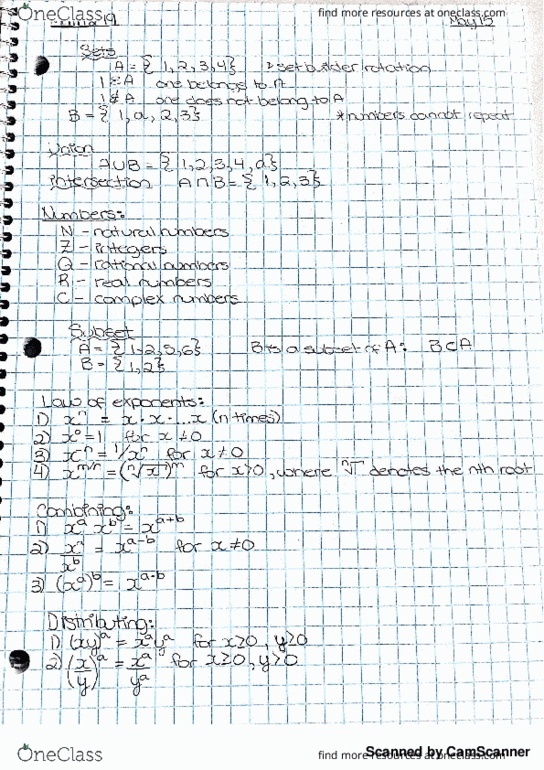 OneClass
find more resources at oneclass.com
May 15
Sets
A = { 1, 2, 3, 4} set builder notation
1 ∈ A one belongs to A
1 ∉ A one does not belong to A
B = { 1, a, 2, 3} *numbers cannot repeat
Union
A ∪ B = { 1, 2, 3, 4, a}
intersection A ∩ B = { 1, 2, 3}
Numbers:
N - natural numbers
Z - integers
Q - rational numbers
R - real numbers
C - complex numbers
Subset
A = { 1, 2, 5, 6} B is a subset of A: B ⊂ A
B = { 1, 2}
Law of exponents:
1) xⁿ = x · x · ... x (n times)
2) x⁰ = 1 for x ≠ 0
3) xⁿ = 1/xⁿ for x ≠ 0
4) x^m/n = (ⁿ√x)^m for x>0, where ⁿ√ denotes the nth root
Combining:
1) x^a x^b = x^a+b
2) x^a/x^b = x^a-b for x ≠ 0
3) (x^a)^b = x^a·b
Distributing:
1) (xy)^a = x^a y^a for x≥0, y≥0
2) (x/y)^a = x^a/y^a for x≥0, y>0
OneClass
find more resources at oneclass.com
Scanned by CamScanner